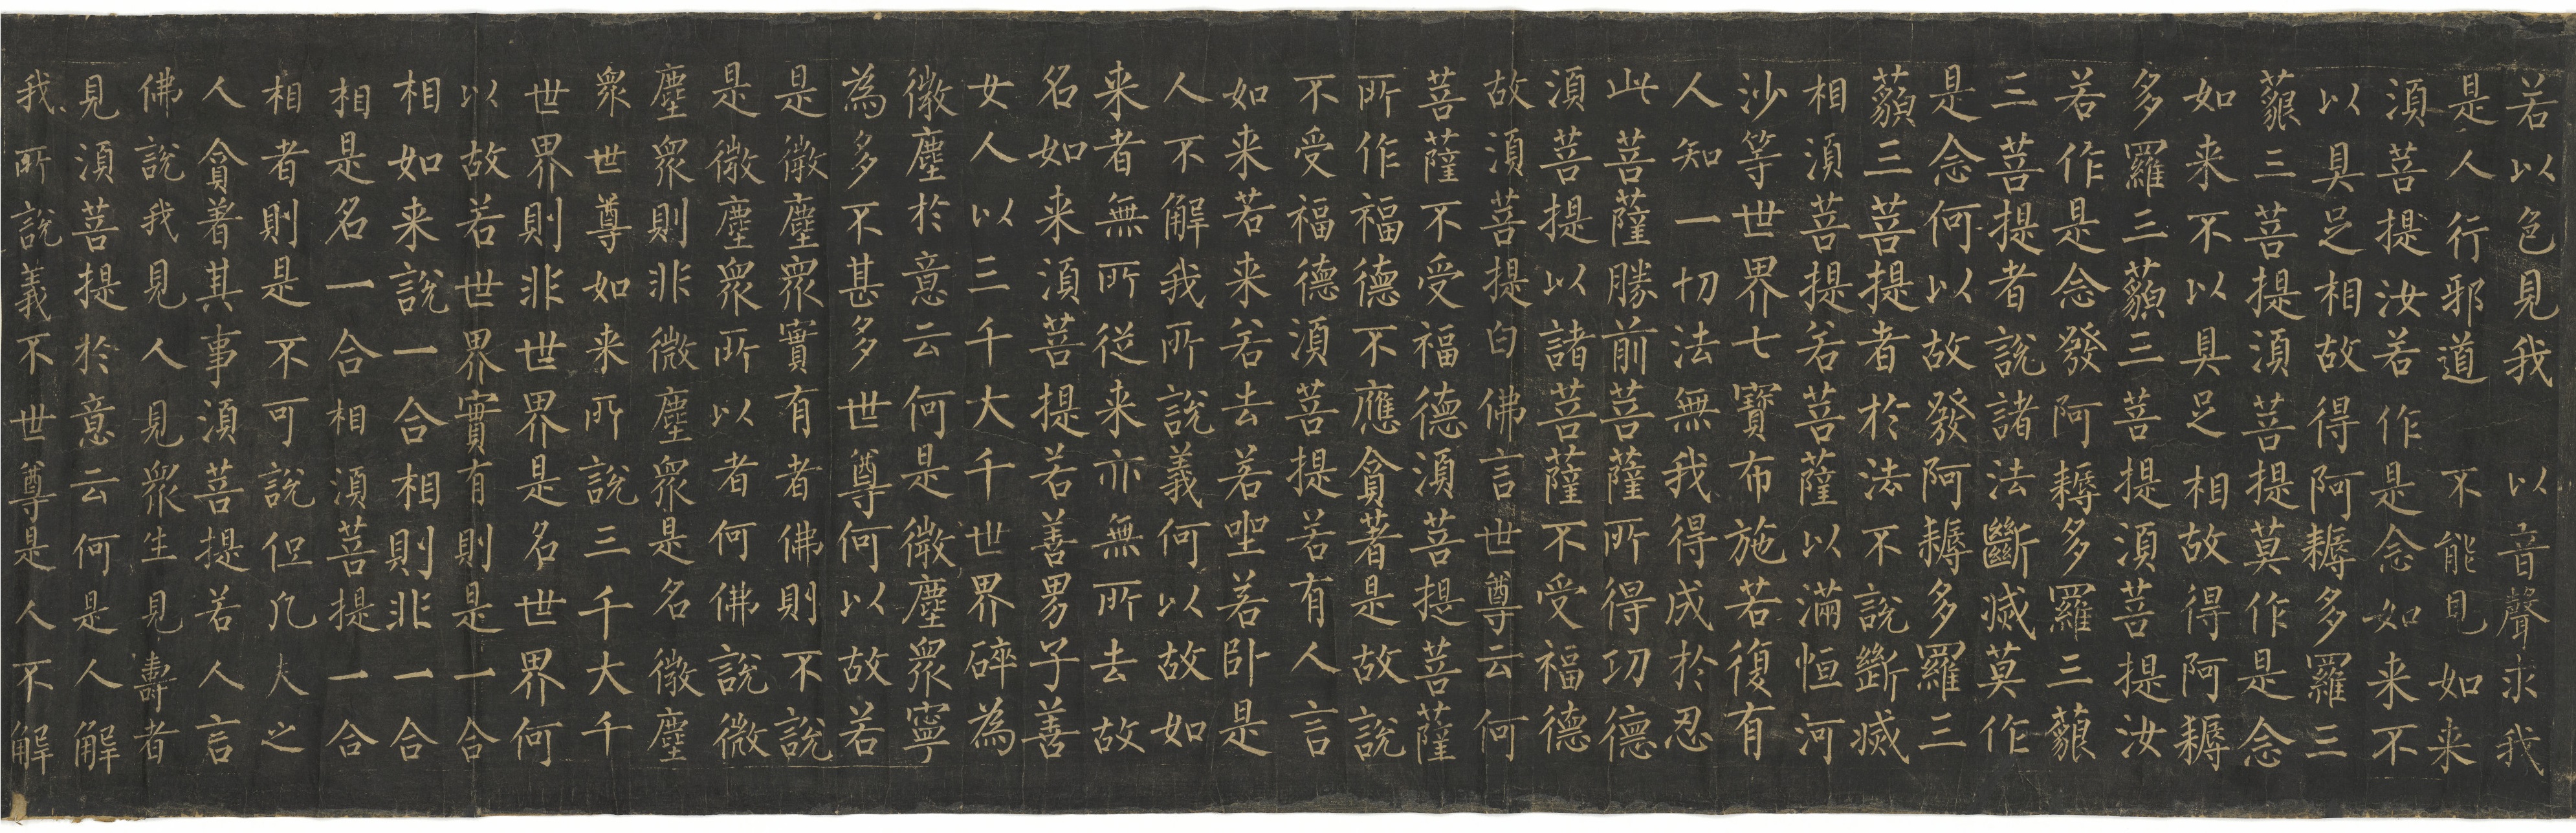 若以色見我　以音聲求我
是人行邪道　不能見如来
須菩提汝若作是念如来不
以具足相故得阿耨多羅三
藐三菩提須菩提莫作是念
如来不以具足相故得阿耨
多羅三藐三菩提須菩提汝
若作是念發阿耨多羅三藐
三菩提者說諸法斷滅莫作
是念何以故發阿耨多羅三
藐三菩提者於法不說斷滅
相須菩提若菩薩以滿恒河
沙等世界七寶布施若復有
人知一切法無我得成於忍
此菩薩勝前菩薩所得功德
須菩提以諸菩薩不受福德
故須菩提白佛言世尊云何
菩薩不受福德須菩提菩薩
所作福德不應貪著是故說
不受福德須菩提若有人言
如来若来若去若坐若卧是
人不解我所說義何以故如
来者無所從来亦無所去故
名如来須菩提若善男子善
女人以三千大千世界碎為
微塵於意云何是微塵眾寧
為多不甚多世尊何以故若
是微塵眾實有者佛則不說
是微塵眾所以者何佛說微
塵眾則非微塵眾是名微塵
眾世尊如来所說三千大千
世界則非世界是名世界何
以故若世界實有則是一合
相如来說一合相則非一合
相是名一合相須菩提一合
相者則是不可說但凡夫之
人貪著其事須菩提若人言
佛說我見人見眾生見壽者
見須菩提於意云何是人解
我所說義不世尊是人不解